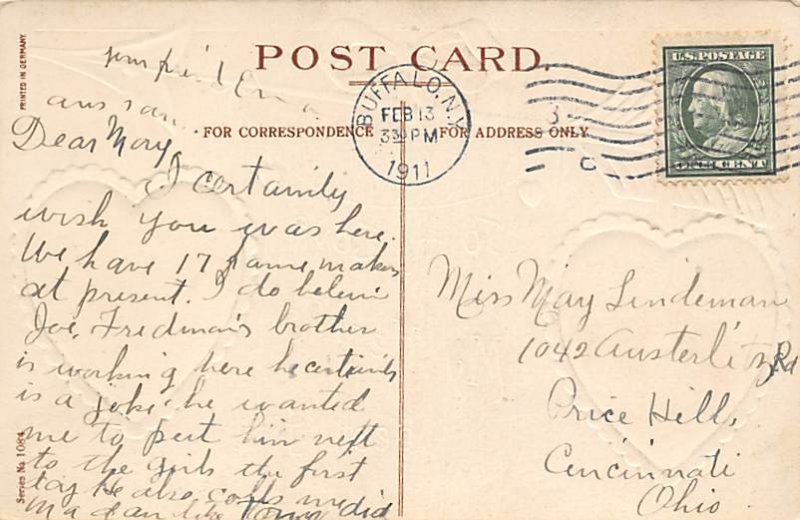 POST CARD.
PRINTED IN GERMANY
BUFFALO, N.Y.
FEB 13
3 30 PM
1911
U.S. POSTAGE
ONE CENT
FOR CORRESPONDENCE
FOR ADDRESS ONLY
ans
Dear Mary
I certainly
wish you was here.
We have 17 frame makers
at present. I do believe
Joe. Fredman's brother
is working here he certainly
is a joke he wanted
me to put him next
to the girls the first
day he also calls me
Madam like Tony did
Series No 1084
Miss May Lindeman
1042 Austerlitz Rd
Price Hill,
Cincinnati
Ohio.